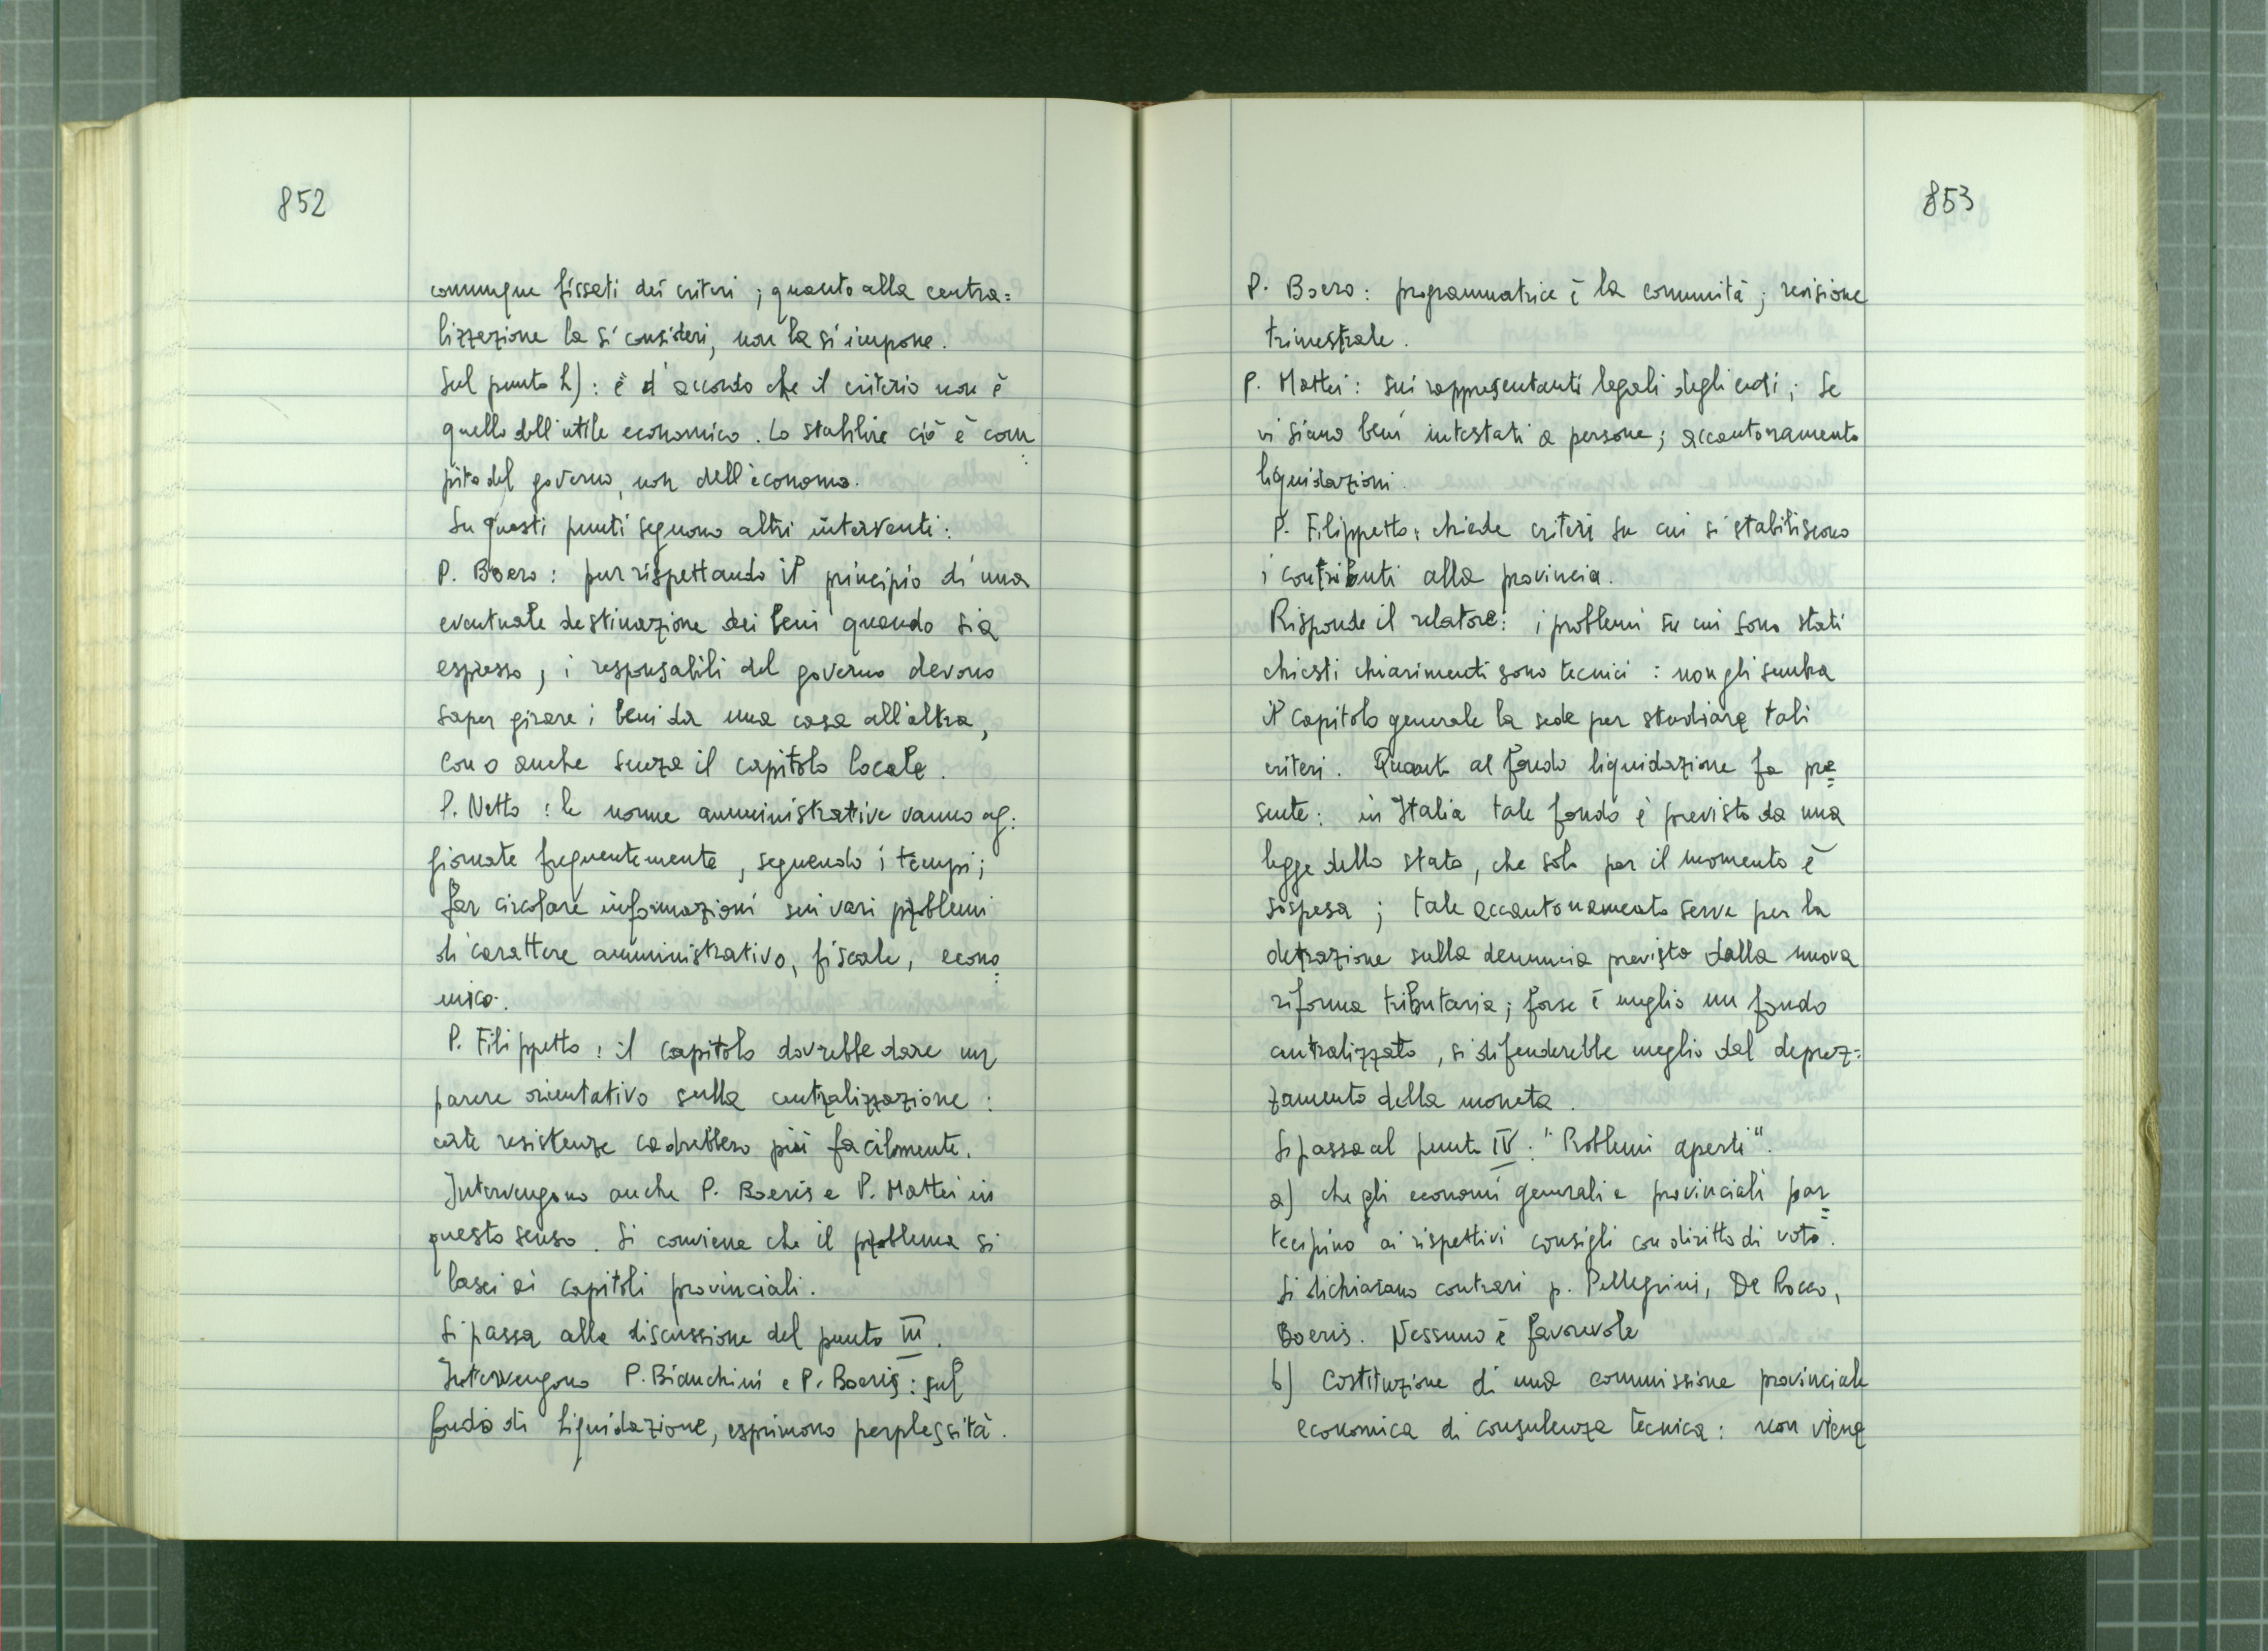 852
comunque fissati dei criteri ; quanto alla centra=
lizzazione la si consideri, non la si impone.
Sul punto h) : è d'accordo che il criterio non è
quello dell'utile economico. Lo stabilire ciò è com
pito del governo, non dell'economo.
Su questi punti seguono altri interventi:
P. Boero : pur rispettando il principio di una
eventuale destinazione dei beni quando sia
espresso, i responsabili del governo devono
saper girare i beni da una casa all'altra,
con o anche senza il capitolo locale.
P. Netto : le norme amministrative vanno ag:
giornate frequentemente, seguendo i tempi;
far circolare informazioni sui vari problemi
di carattere amministrativo, fiscale, econo
mico.
P. Filippetto : il capitolo dovrebbe dare un
parere orientativo sulla centralizzazione :
certe resistenze cadrebbero più facilmente.
Intervengono anche P. Boeris e P. Mattei in
questo senso. Si conviene che il problema si
lasci ai capitoli provinciali.
Si passa alla discussione del punto III.
Intervengono P. Bianchini e P. Boeris : sul
fondo di liquidazione, esprimono perplessità.
853
P. Boero : programmatrice è la comunità ; revisione
trimestrale.
P. Mattei : sui rappresentanti legali degli enti ; se
vi siano beni intestati a persone ; accantonamento
liquidazioni.
P. Filippetto : chiede criteri su cui si stabiliscono
i contributi alla provincia.
Risponde il relatore : i problemi su cui sono stati
chiesti chiarimenti sono tecnici : non gli sembra
il capitolo generale la sede per studiare tali
criteri. Quanto al fondo liquidazione fa pre=
sente : in Italia tale fondo è previsto da una
legge dello stato, che solo per il momento è
sospesa ; tale accantonamento serve per la
detrazione sulla denuncia prevista dalla nuova
riforma tributaria ; forse è meglio un fondo
centralizzato, si difenderebbe meglio dal deprez=
zamento della moneta.
Si passa al punto IV : "Problemi aperti".
a) che gli economi generali e provinciali par=
tecipino ai rispettivi consigli con diritto di voto.
Si dichiarano contrari p. Pellegrini, De Rocco,
Boeris. Nessuno è favorevole
b) Costituzione di una commissione provinciale
economica di consulenza tecnica : non viene